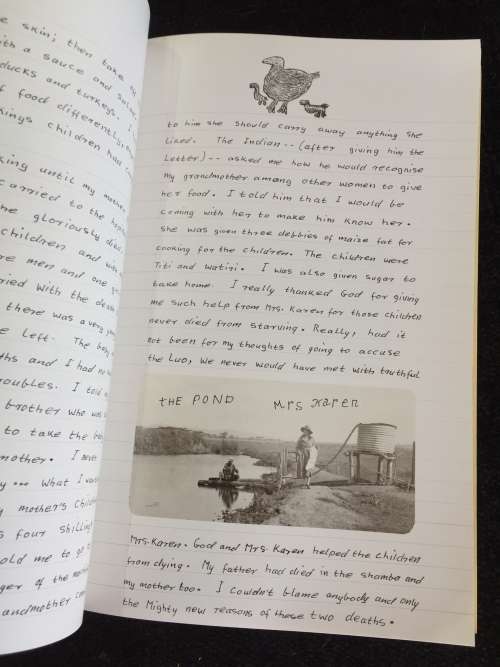 e skin; then take
ith a sauce and
ducks and turkeys. I
f food differently
kings children had
king until my mother
carried to the
he gloriously died.
children and
re men and one
ried with the death
there was a very
e left. The
ths and I had no
roubles. I told
brother who was
to take the
mother. I never
y --- What I
y mother's children
s four shilling
told me to go
ger of the
andmother
to him she should carry away anything she
liked. The Indian -- (after giving him the
Letter) -- asked me how he would recognise
my grandmother among other women to give
her food. I told him that I would be
coming with her to make him know her.
she was given three debbies of maize fat for
cooking for the children. The children were
Titi and Watiri. I was also given sugar to
take home. I really thanked God for giving
me such help from Mrs. Karen for those children
never died from starving. Really, had it
not been for my thoughts of going to accuse
the Luo, We never would have met with truthful
THE POND Mrs Karen
Mrs. Karen. God and Mrs. Karen helped the children
from dying. My father had died in the shamba and
my mother too. I couldn't blame anybody and only
the Mighty new reasons of these two deaths.